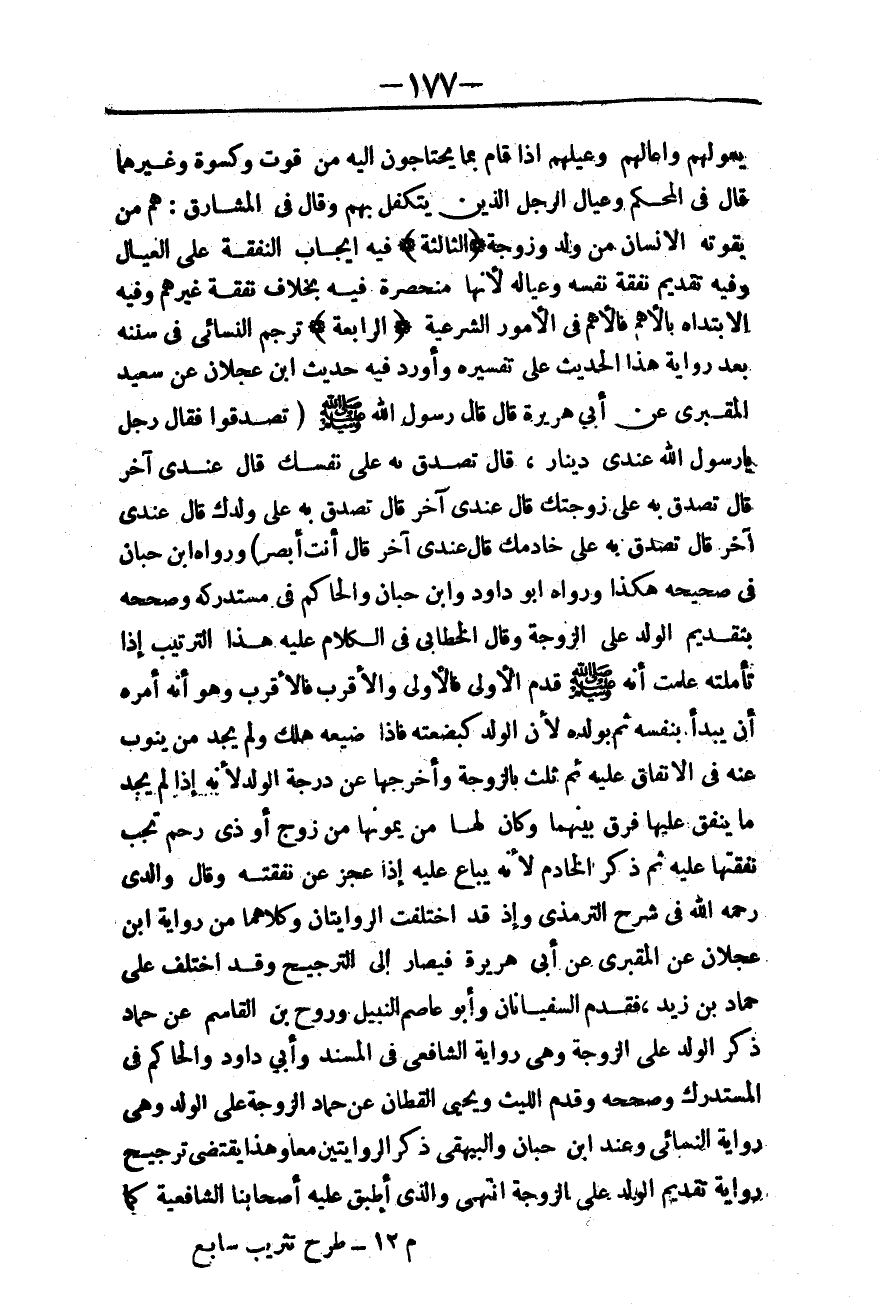 -١٧٧-
يعولهم واعالهم وعيلهم اذا قام بما يحتاجون اليه من قوت وكسوة وغيرهما
قال فى المحكم وعيال الرجل الذين يتكفل بهم وقال فى المشارق : هم من
يقوته الانسان من ولد وزوجة ﴿الثالثة﴾ فيه ايجاب النفقة على العيال
وفيه تقديم نفقة نفسه وعياله لأنها منحصرة فيه بخلاف نفقة غيرهم وفيه
الابتداء بالأهم فالأهم فى الأمور الشرعية ﴿ الرابعة ﴾ ترجم النسائى فى سننه
بعد رواية هذا الحديث على تفسيره وأورد فيه حديث ابن عجلان عن سعيد
المقبرى عن أبي هريرة قال قال رسول الله ﷺ ( تصدقوا فقال رجل
يارسول الله عندى دينار ، قال تصدق به على نفسك قال عندى آخر
قال تصدق به على زوجتك قال عندى آخر قال تصدق به على ولدك قال عندى
آخر قال تصدق به على خادمك قال عندى آخر قال أنت أبصر) ورواه ابن حبان
فى صحيحه هكذا ورواه ابو داود وابن حبان والحاكم فى مستدركه وصححه
بتقديم الولد على الزوجة وقال الخطابى فى الكلام عليه هذا الترتيب إذا
تأملته علمت أنه ﷺ قدم الأولى فالأولى والأقرب فالأقرب وهو أنه أمره
أن يبدأ بنفسه ثم بولده لأن الولد كبضعته فاذا ضيعه هلك ولم يجد من ينوب
عنه فى الانفاق عليه ثم ثلث بالزوجة وأخرجها عن درجة الولد لأنه إذا لم يجد
ما ينفق عليها فرق بينهما وكان لها من يمونها من زوج أو ذى رحم تجب
نفقتها عليه ثم ذكر الخادم لأنه يباع عليه إذا عجز عن نفقته وقال والدى
رحمه الله فى شرح الترمذى وإذ قد اختلفت الروايتان وكلاهما من رواية ابن
عجلان عن المقبرى عن أبى هريرة فيصار إلى الترجيح وقد اختلف على
حماد بن زيد ،فقدم السفيانان وأبو عاصم النبيل وروح بن القاسم عن حماد
ذكر الولد على الزوجة وهى رواية الشافعى فى المسند وأبي داود والحاكم فى
المستدرك وصححه وقدم الليث ويحيى القطان عن حماد الزوجة على الولد وهى
رواية النسائى وعند ابن حبان والبيهقى ذكر الروايتين معا وهذا يقتضى ترجيح
رواية تقديم الولد على الزوجة انتهى والذى أطبق عليه أصحابنا الشافعية كما
م ١٢ - طرح تثريب سابع